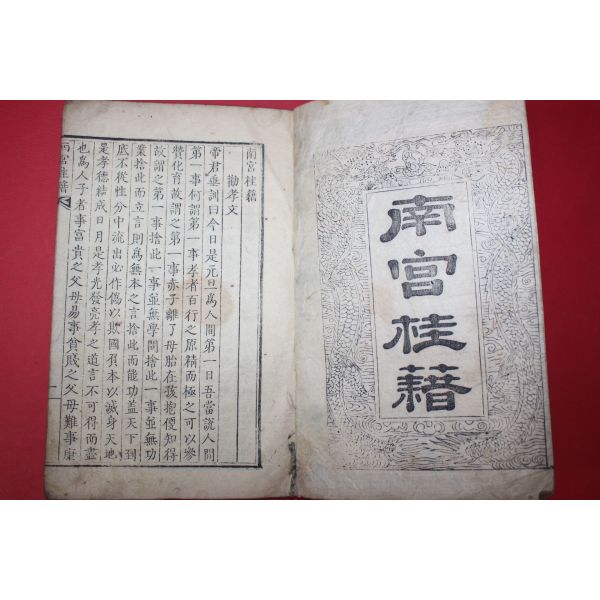 南宮桂籍
南宮桂籍
勸孝文
帝君垂訓曰今日是元旦爲人間第一日吾當說人間
第一事何謂第一事孝者百行之原精而極之可以參
贊化育故謂之第一事赤子離了母胎在孩抱便知得
故謂之第一事捨此一事並無學問捨此一事並無功
業捨此而立言則爲無本之言捨此而能功盖天下到
底不從性分中流出必作僞以欺國有本以滅身天地
是孝德結成日月是孝光發亮孝之道言不可得而盡
也爲人子者事富貴之父母易事貧賤之父母難事康
南宮桂籍
一